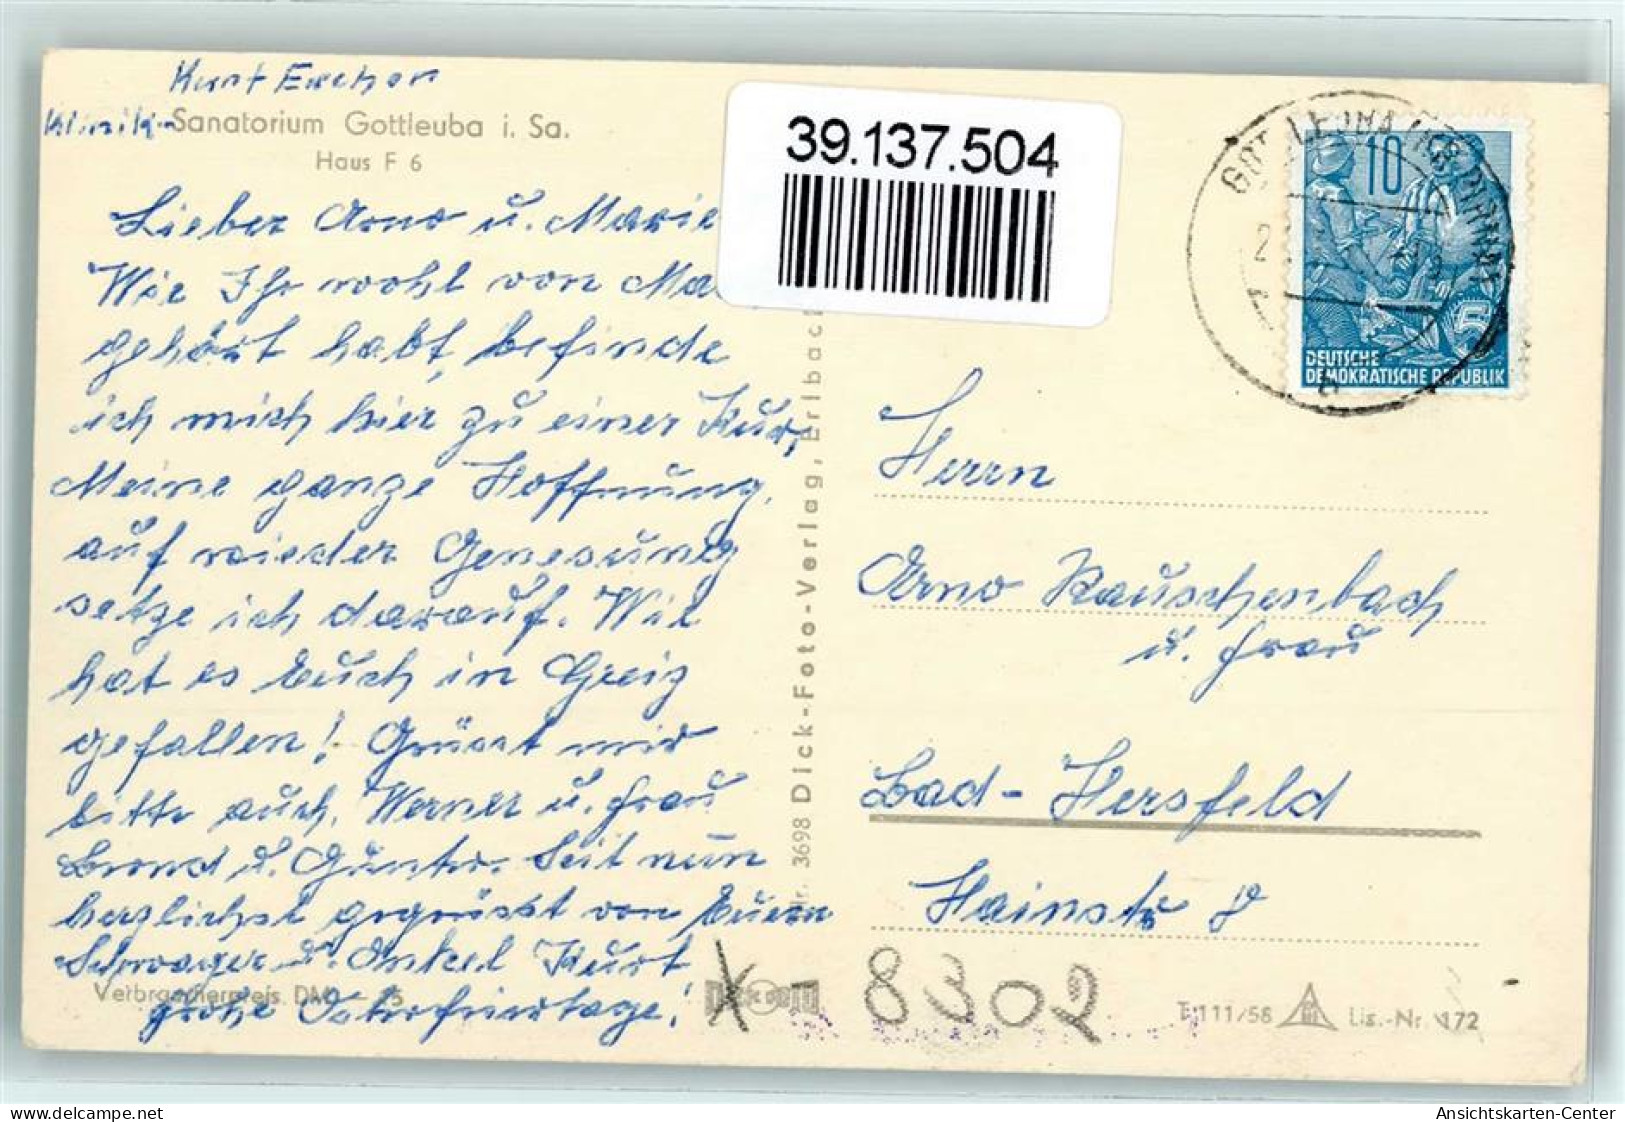 Kurt
Klinik-Sanatorium Gottleuba i. Sa.
Haus F 6
Lieber Arno u. Marie
Wie Ihr wohl von Ma
gehört habt, befinde
ich mich hier zu einer Kur,
Meine ganze Hoffnung,
auf wieder Genesung
setze ich darauf. Wie
hat es Euch in Greiz
gefallen! Grüsst mir
bitte auch, Werner u. Frau
u. Günter. Seit nun
herzlichst gegrüsst von Euern
Schwager u. Onkel Kurt
Verbraucherpreis DM
frohe Osterfeiertage!
Nr. 3698 Dick-Foto-Verlag, Erlbach
39.137.504
10
DEUTSCHE
DEMOKRATISCHE REPUBLIK
Herrn
Arno Rauschenbach
u. Frau
Bad-Hersfeld
Hainstr 8
X 8302
T 111/58 Lis.-Nr. 172
delcampe.net
Ansichtskarten-Center